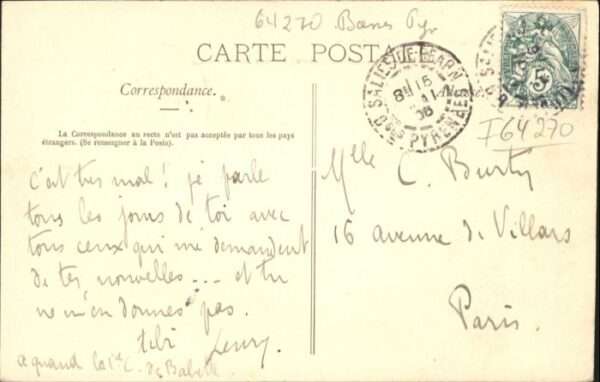 64270 Basses Pyr
CARTE POSTALE
Correspondance.
La Correspondance au recto n'est pas acceptée par tous les pays
étrangers. (Se renseigner à la Poste).
SALIES-DE-BEARN
8H 15
08
Bses PYRENEES
5c
I 64270
c'est très mal! je parle
tous les jours de toi avec
tous ceux qui me demandent
de tes nouvelles... et tu
ne m'en donnes pas.
à quand la 1re C. de Babeth
Mlle C. Burty
16 avenue de Villars
Paris.